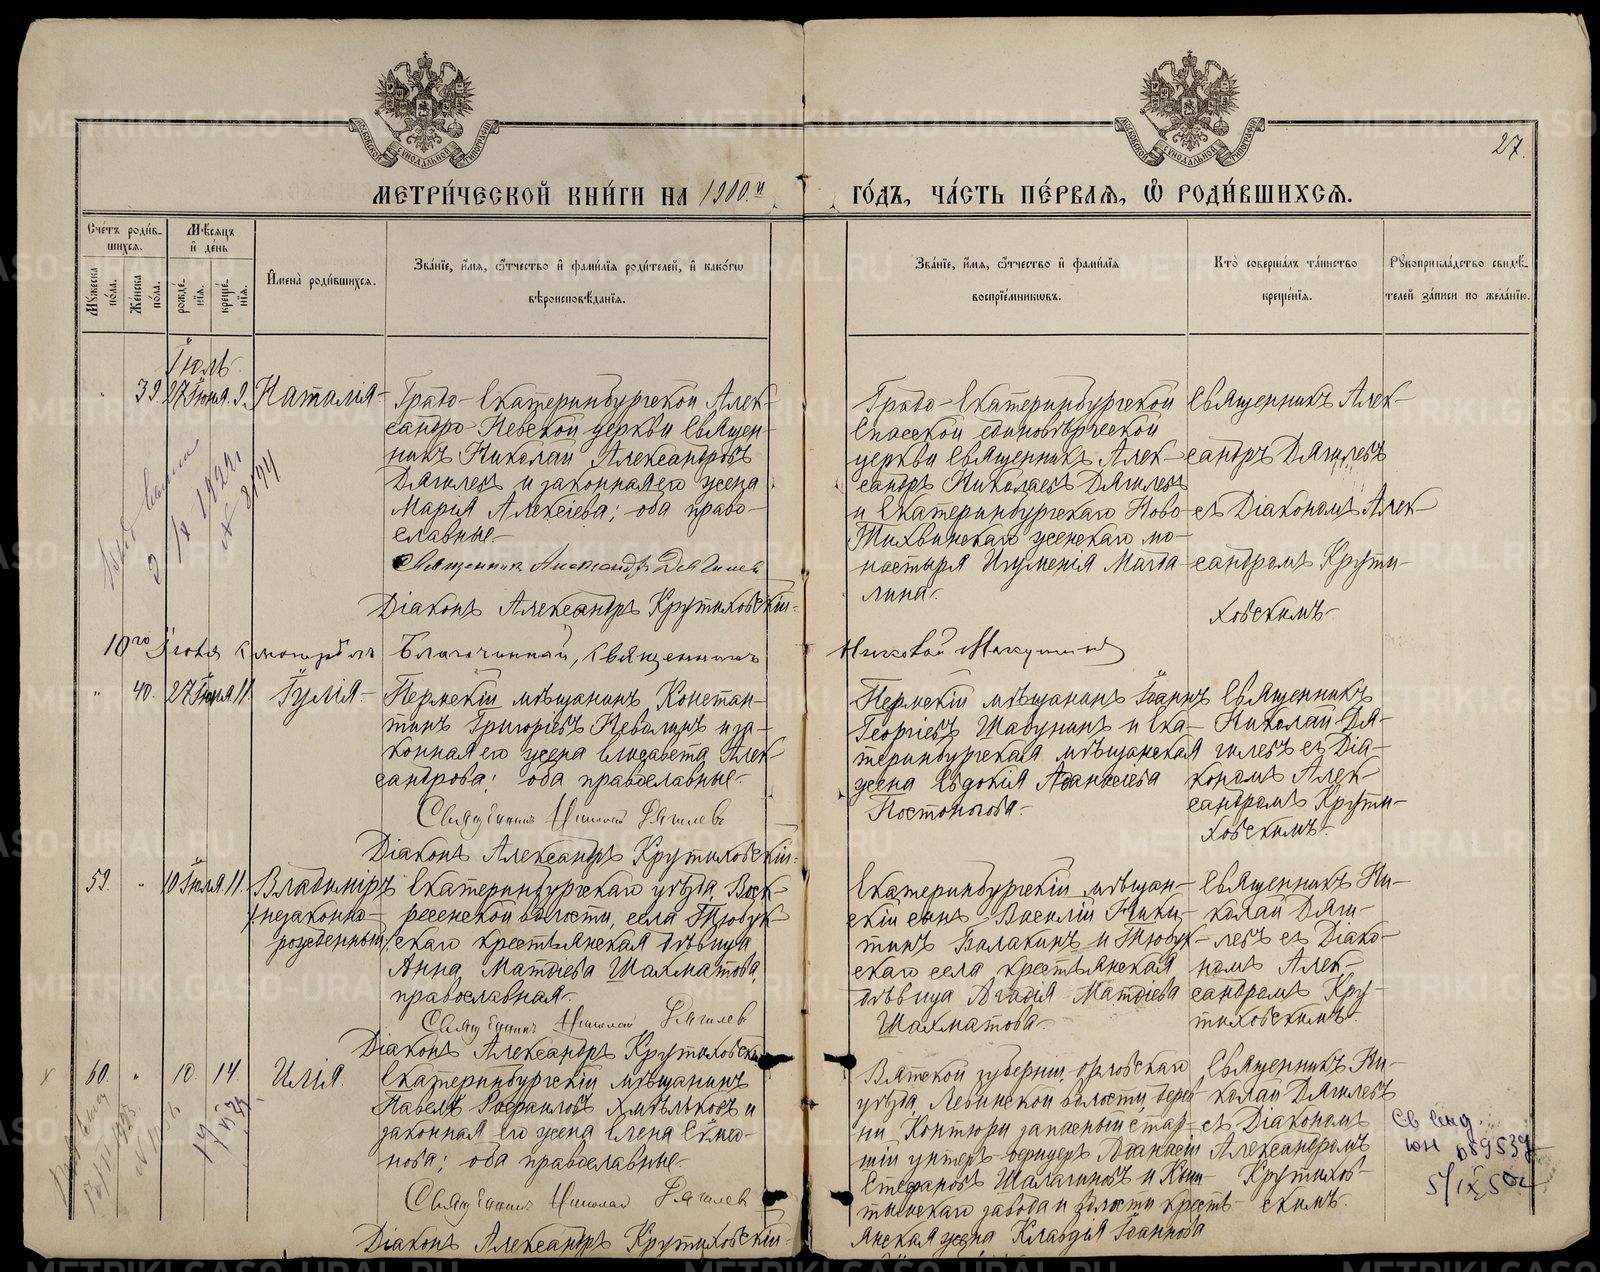 27.
МЕТРИ́ЧЕСКОЙ КНИ́ГИ НА 1900.й ГО́ДЪ, ЧА́СТЬ ПЕ́РВАѦ, Ѿ РОДИ́ВШИХСѦ.
Сче́тъ роди́в-
шихсѧ.
Мꙋ́жеска по́ла.
Же́нска по́ла.
Мѣ́сѧцъ
и҆ де́нь
рожде́-
нїѧ.
креще́-
нїѧ.
И҆мена̀ роди́вшихсѧ.
Зва́нїе, и҆́мѧ, ѻ҆́тчество и҆ фами́лїѧ роди́телей, и҆ како́гѡ
вѣроисповѣ́данїѧ.
Зва́нїе, и҆́мѧ, ѻ҆́тчество и҆ фами́лїѧ
воспрїе́мниковъ.
Кто̀ соверша́лъ та́инство
креще́нїѧ.
Рꙋкоприкла́дство свидѣ́-
телей за́писи по жела́нїю.
Іюль
" 39. 27 Іюня. 9. Наталія
Градо-Екатеринбургской Алек-
сандро-Невской церкви Священ-
никъ Николай Александровъ
Дягилевъ и законная его жена
Марія Алексіева; оба право-
славные
Священник Александръ Дягилевъ
Діаконъ Александръ Крутиховскій.
Градо-Екатеринбургской
Спасской единовѣрческой
церкви Священникъ Алек-
сандръ Николаевъ Дягилевъ
и Екатеринбургскаго Ново-
Тихвинскаго женскаго мо-
настыря Игуменія Магда-
лина
Священникъ Алек-
сандръ Дягилевъ
съ Діакономъ Алек-
сандромъ Крути-
ховскимъ
2 IX 1922
10го Іюля Благочинный, священникъ
" 40. 27 Іюня 11 Іулія
Пермскій мѣщанинъ Констан-
тинъ Григорьевъ Неволинъ и за-
конная его жена Елизавета Алек-
сандрова; оба православные
Священникъ Николай Дягилевъ
Діаконъ Александръ Крутиховскій.
Пермскій мѣщанинъ Іоаннъ
Георгіевъ Шавунинъ и Ека-
теринбургская мѣщанская
жена Евдокія Аѳанасіева
Постоногова
Священникъ
Николай Дя-
гилевъ съ Діа-
кономъ Алек-
сандромъ Крути-
ховскимъ
59. " 10 Іюля 11. Владиміръ
/незаконно-
рожденный/
Екатеринбургскаго уѣзда, Воск-
ресенской волости, села Тюбук-
скаго крестьянская дѣвица
Анна Матѳіева Шахматова,
православная
Священникъ Николай Дягилевъ
Діаконъ Александръ Крутиховскій
Екатеринбургскій мѣщан-
скій сынъ Василій Ники-
тинъ Балакинъ и Тюбук-
скаго села крестьянская
дѣвица Агафія Матѳіева
Шахматова
Священникъ Ни-
колай Дяги-
левъ съ Діако-
номъ Алек-
сандромъ Кру-
тиховскимъ
60. " 10. 14. Илія.
Екатеринбургскій мѣщанинъ
Павелъ Рафаиловъ Хмѣльковъ и
законная его жена Елена Семе-
нова; оба православные
Священникъ Николай Дягилевъ
Діаконъ Александръ Крутиховскій
Вятской губерніи, Орловскаго
уѣзда, Левинской волости, дерев-
ни Контюри запасный стар-
шій унтеръ-офицеръ Аѳанасій
Стефановъ Шалагиновъ и Кыш-
тымскаго завода и волости кресть-
янская жена Клавдія Іоаннова
Священникъ Ни-
колай Дягилевъ
съ Діакономъ
Александромъ
Крутихов-
скимъ.
Св выд.
юн 089539
5/IX 50г
METRIKI.GASO-URAL.RU